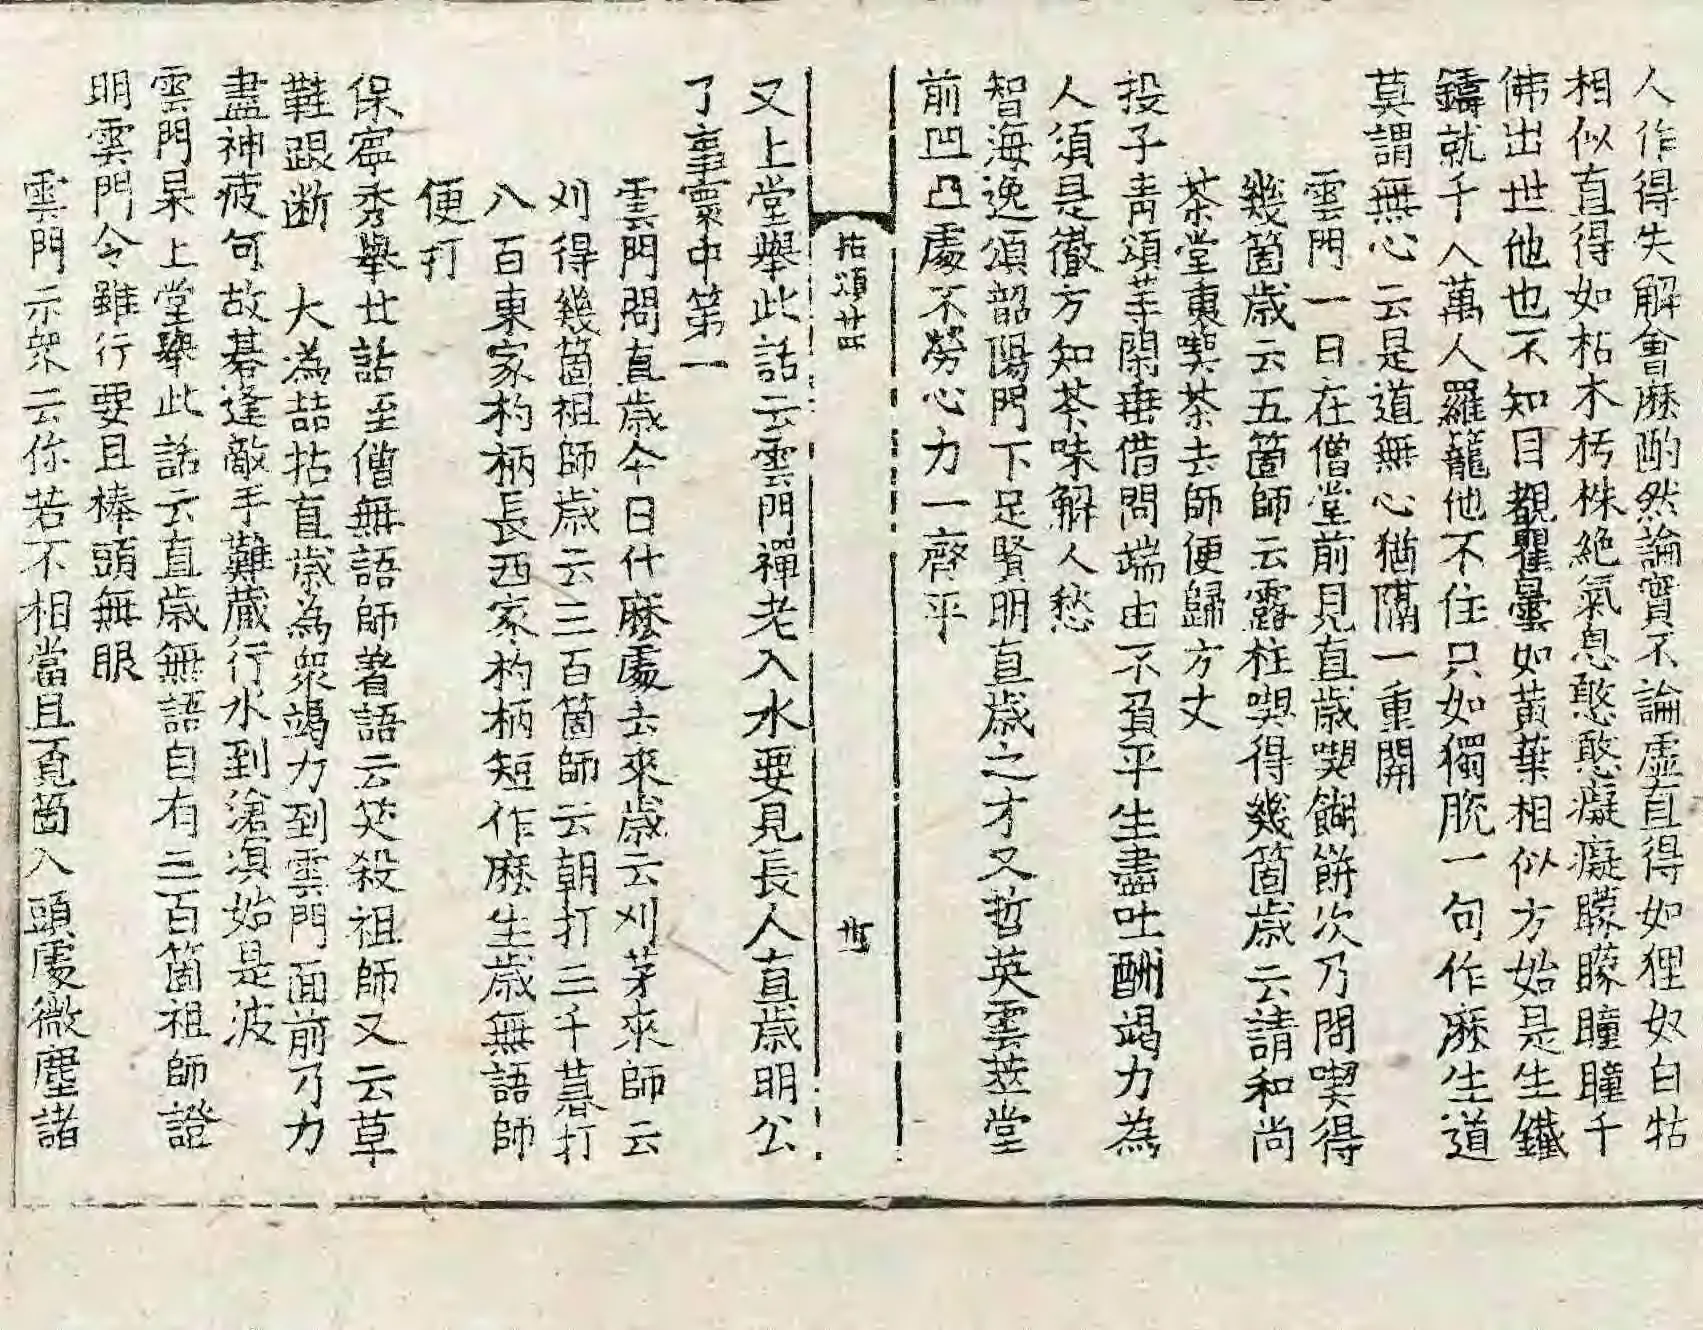 人作得失解會麽酌然論實不論虛直得如狸奴白牯
相似直得如枯木朽株絶氣息憨憨癡癡矇矇瞳瞳千
佛出世他也不知目覩瞿曇如黃葉相似方始是生鐵
鑄就千人萬人羅籠他不住只如獨脫一句作麽生道
莫謂無心云是道無心猶隔一重關
雲門一日在僧堂前見直歲喫餬餅次乃問喫得
幾箇歲云五箇師云露柱喫得幾箇歲云請和尚
茶堂裏喫茶去師便歸方丈
投子靑頌等閑垂借問端由不負平生盡吐酬竭力為
人須是徹方知茶味解人愁
智海逸頌韶陽門下足賢明直歲之才又哲英雲莚堂
前凹凸處不勞心力一齊平
拈頌廿四
又上堂擧此話云雲門禪老入水要見長人直歲明公
了事霥中第一
雲門問直歲今日什麽處去來歲云刈茅來師云
刈得幾箇祖師歲云三百箇師云朝打三千暮打
八百東家杓柄長西家杓柄短作麽生歲無語師
便打
保寧秀擧廿話至僧無語師著語云笑殺祖師又云草
鞋跟断 大潙喆拈直歲為衆竭力到雲門面前乃力
盡神疲何故碁逢敵手難藏行水到滄溟始是波
雲門杲上堂擧此話云直歲無語自有三百箇祖師證
明雲門令雖行要且棒頭無眼
雲門示衆云你若不相當且覔箇入頭處微塵諸